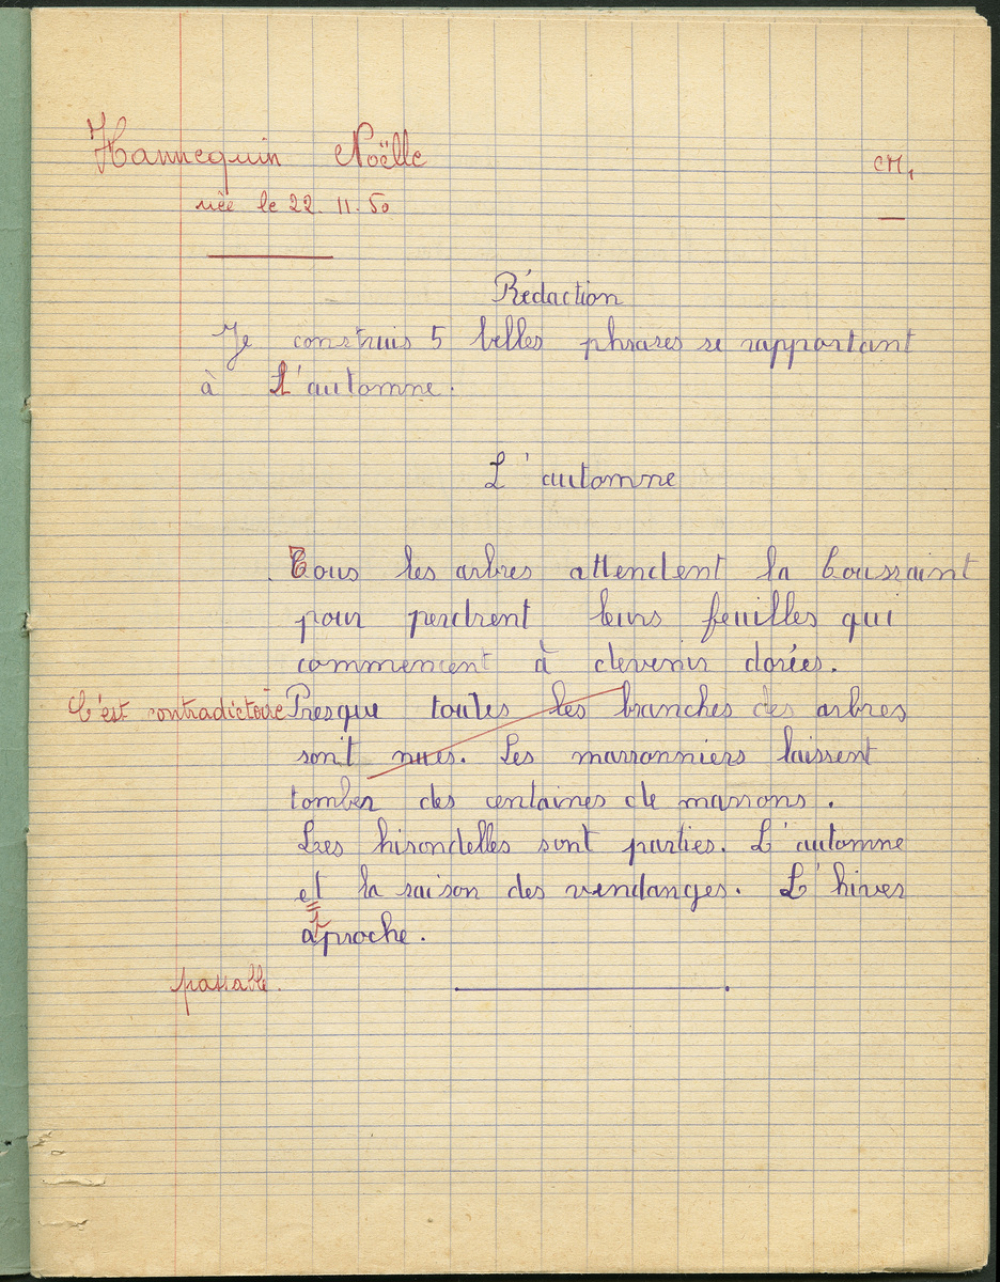 Hannequin Noëlle
CM1
née le 22.11.50
Rédaction
Je construis 5 belles phrases se rapportant
à l'automne.
L'automne
Tous les arbres attendent la Toussaint
pour perdrent leurs feuilles qui
commencent à devenir dorées.
C'est contradictoire Presque toutes les branches des arbres
sont nues. Les marronniers laissent
tomber des centaines de marrons.
Les hirondelles sont parties. L'automne
et la saison des vendanges. L'hiver
approche.
passable.